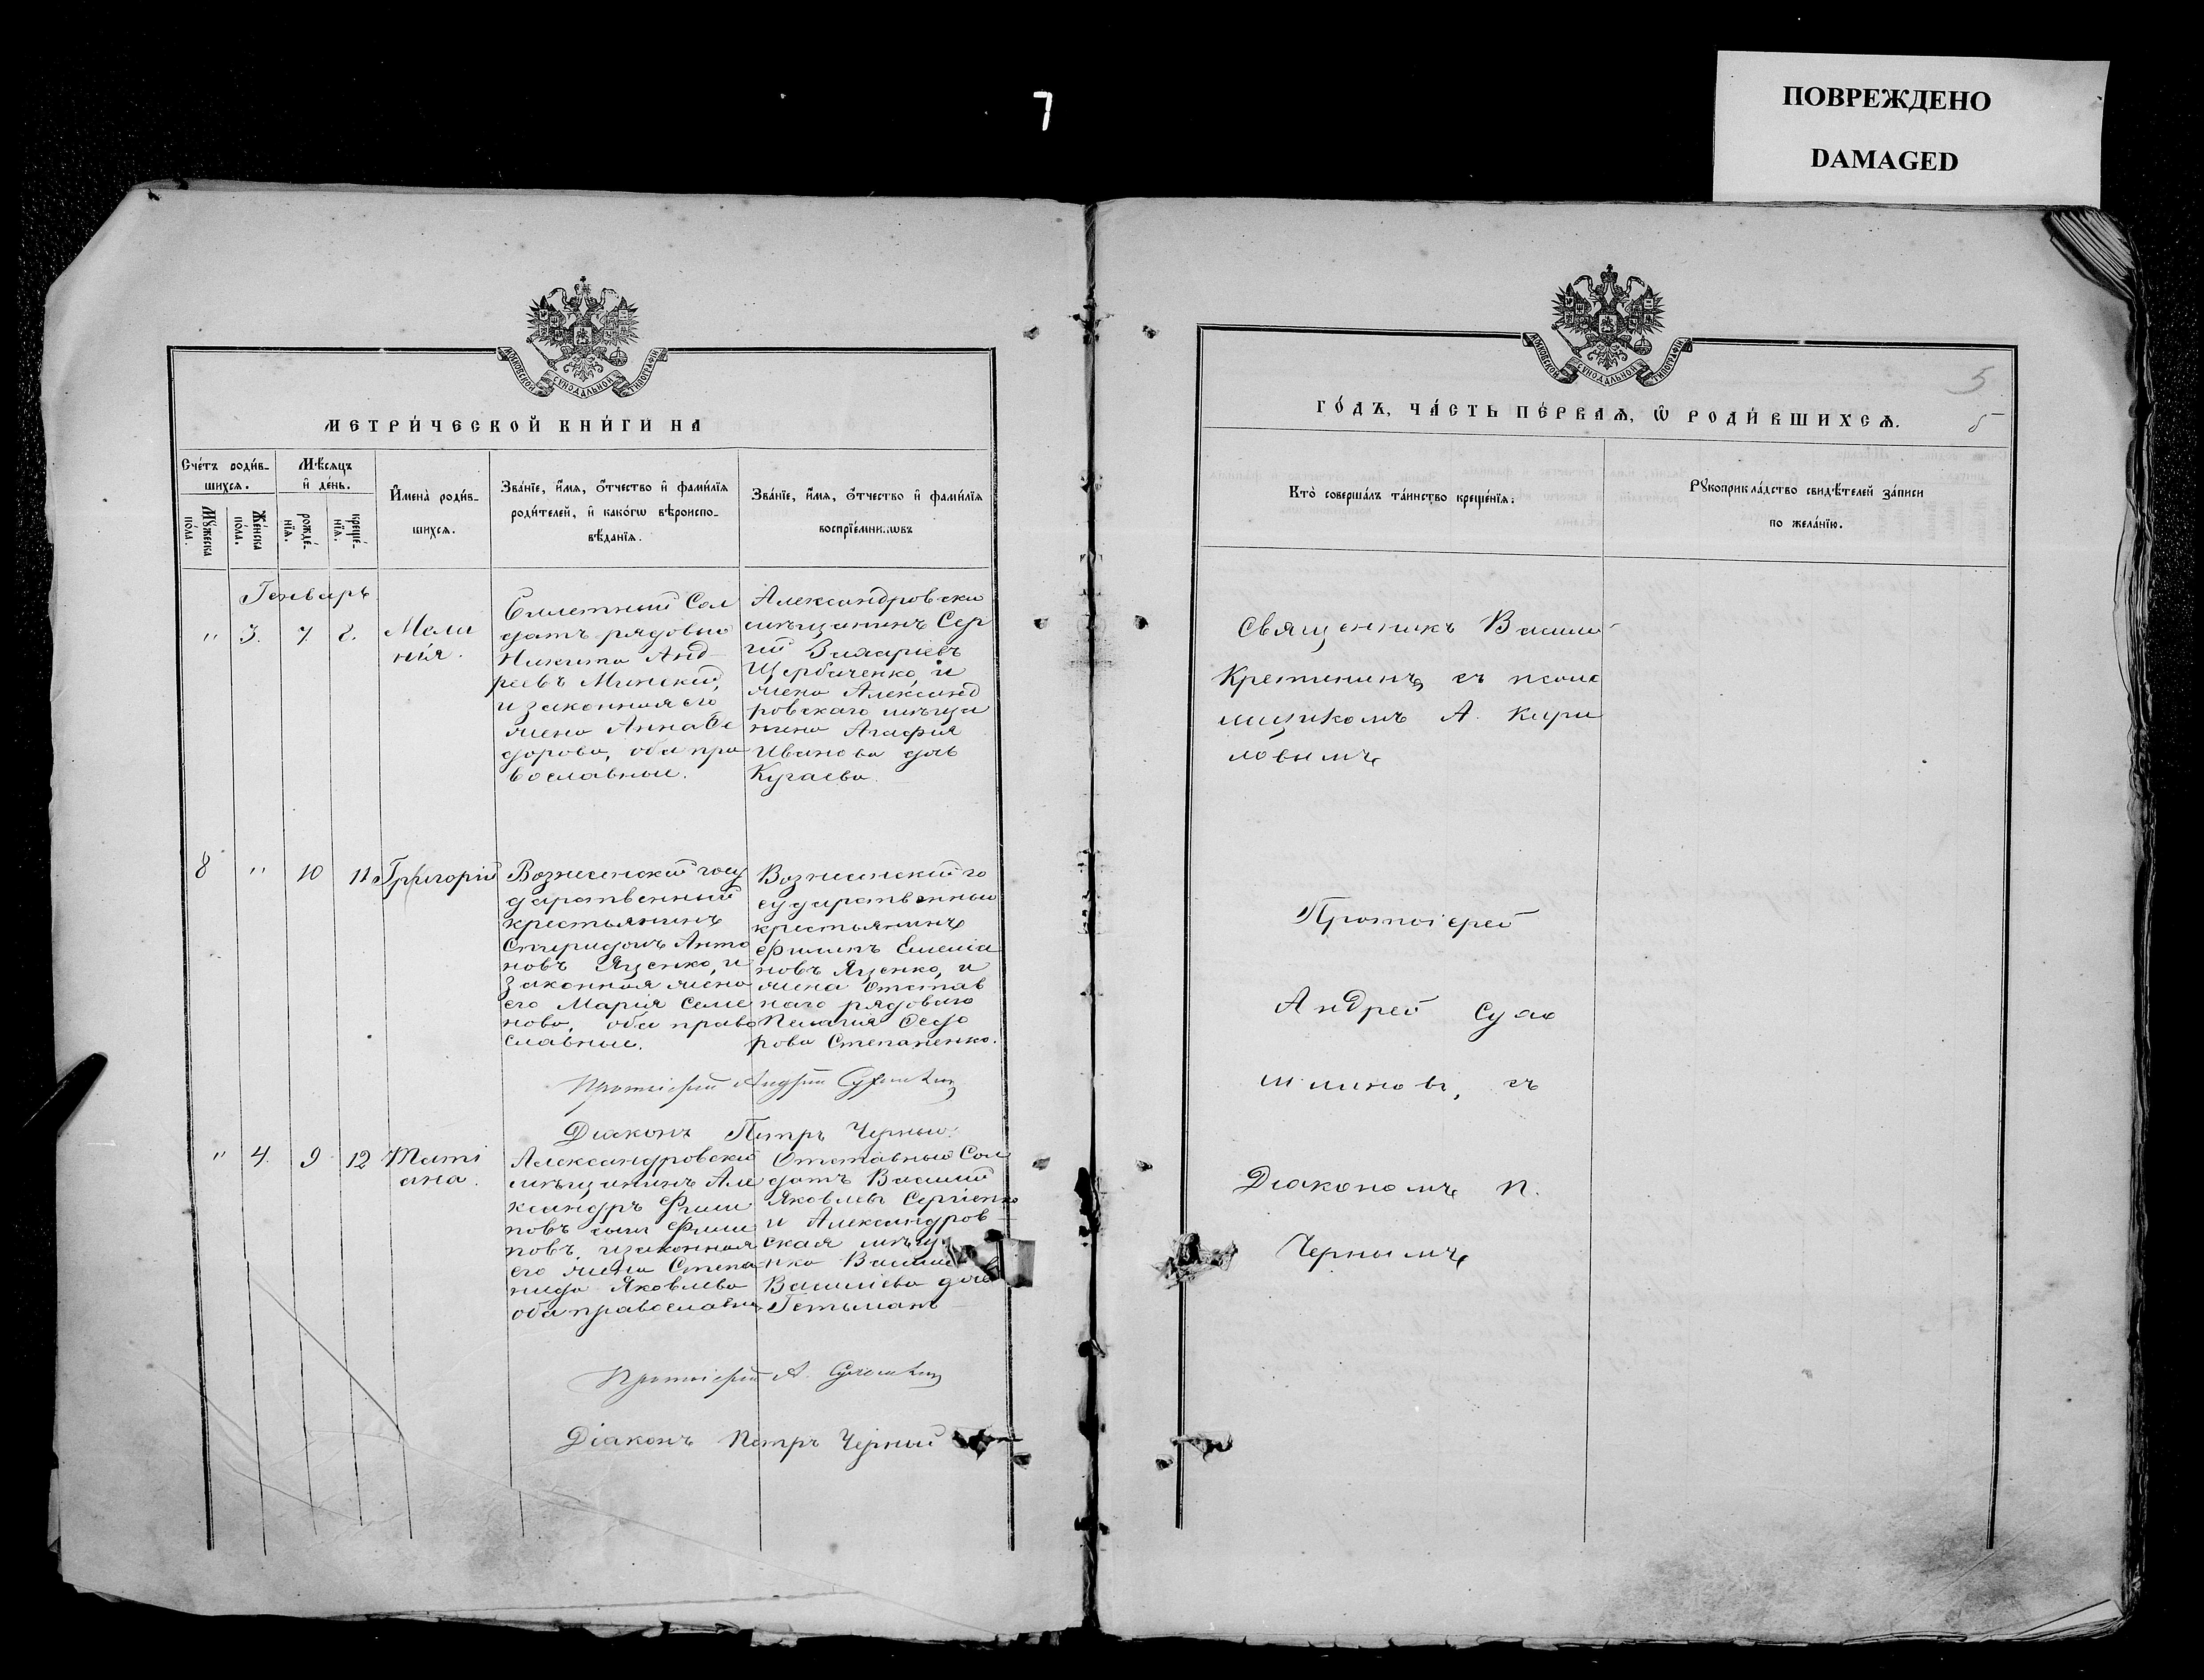 7
ПОВРЕЖДЕНО
DAMAGED
МОСКОВСКОЙ СѴНОДАЛЬНОЙ ТИПОГРАФІИ
МЕТРИ́ЧЕСКОЙ КНИ́ГИ НА
Сче́тъ роди́в-
шихсѧ.
Мѣ́сѧцъ
и҆ де́нь.
Мꙋ́жеска
по́ла.
Же́нска
по́ла.
рожде́-
нїѧ.
креще́-
нїѧ.
И҆мена̀ роди́в-
шихсѧ.
Зва́нїе, и҆́мѧ, ѻ҆́тчество и҆ фамѝлїѧ
роди́телей, и҆ како́гѡ вѣроиспо-
вѣ́данїѧ.
Зва́нїе, и҆́мѧ, ѻ҆́тчество и҆ фамѝлїѧ
воспрїе́мни..ѡвъ
Генварь
" 3. 7. 8.
Мела
нія.
Билетный Сол
датъ рядовый
Никита Анд-
реевъ Минский,
и законная его
жена Анна Ѳе
дорова, оба пра
вославные.
Александровски
мѣщанинъ Сер
гій Захаріевъ
Щербаченко, и
жена Александ
ровскаго мѣща
нина Агафія
Иванова дочь
Кугаева.
8 " 10 11 Григорій
Вознесенскій госу
дарственный
крестьянинъ
Спиридонъ Анто
новъ Яценко, и
законная жена
его Марія Семе
нова, оба право
славные.
Вознесенскій го
сударственный
крестьянинъ
Филипъ Емелiа
новъ Яценко, и
жена Отстав
наго рядоваго
Пелагія Ѳедо
рова Степаненко.
Протоіерей Андрей
Діаконъ Петръ Черный.
" 4. 9 12 Таті
ана.
Александровскій
мѣщанинъ Але
ксандръ Фили
повъ сынъ Фили
повъ, и законная
его жена Степа
нида Яковлева
оба православны
Отставный Сол
датъ Василій
Яковлевъ Сергіенко
и Александров-
ская мѣщ
нка Васили
Васильева дочь
Гетьманъ
Протоіерей А.
Діаконъ Петръ Черный
МОСКОВСКОЙ СѴНОДАЛЬНОЙ ТИПОГРАФІИ
5
5
ГО́ДЪ, ЧА́СТЬ ПЕ́РВАѦ, Ѡ҆ РОДИ́ВШИХСѦ.
Кто̀ соверша́лъ та́инство креще́нїѧ:
Рꙋкоприкла́дство свидѣ́телей за́писи
по жела́нїю.
Священникъ Васили
Кретининъ, съ псалм
щикомъ А. Кири
ловымъ
Протоіерей
Андрей Сухо
млиновъ, съ
Діакономъ П.
Чернымъ